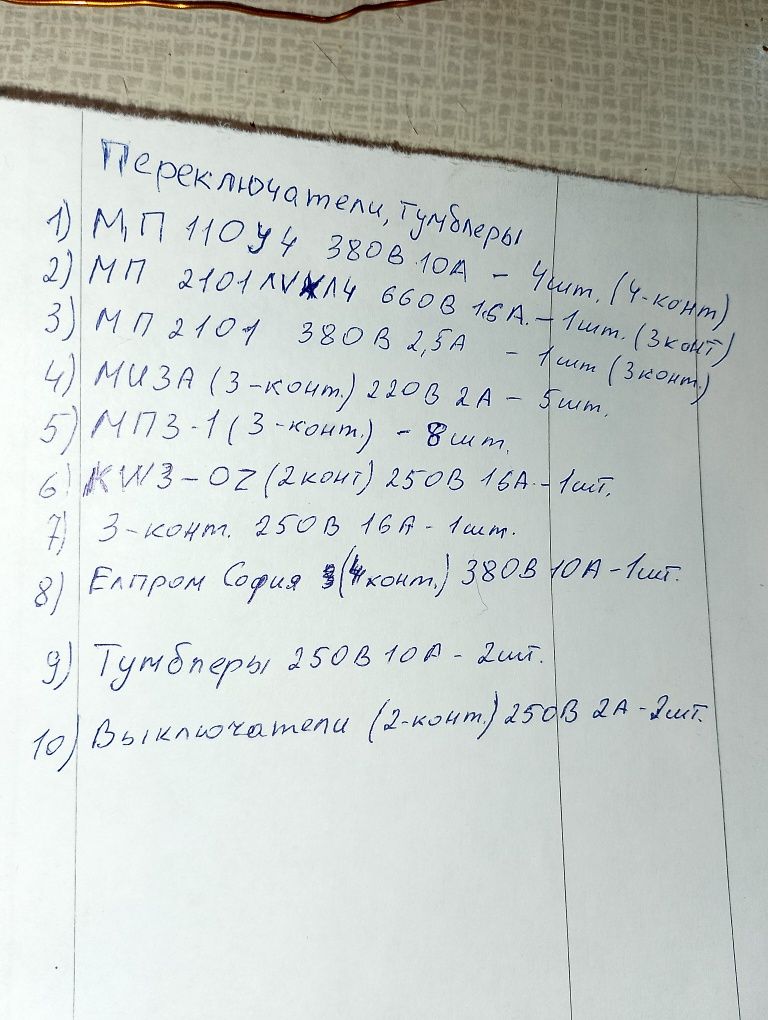 Переключатели, тумблеры
1) МП 110У4 380В 10А - 4шт. (4-конт)
2) МП 2101 660В 16А. - 1шт. (3конт)
3) МП 2101 380В 2,5А - 1шт (3конт.)
4) МИ3А (3-конт.) 220В 2А - 5шт.
5) МП3-1 (3-конт.) - 8шт.
6) KW3-OZ (2конт) 250В 16А - 1шт.
7) 3-конт. 250В 16А - 1шт.
8) Елпром София (4конт.) 380В 10А - 1шт.
9) Тумблеры 250В 10А - 2шт.
10) Выключатели (2-конт.) 250В 2А - 2шт.